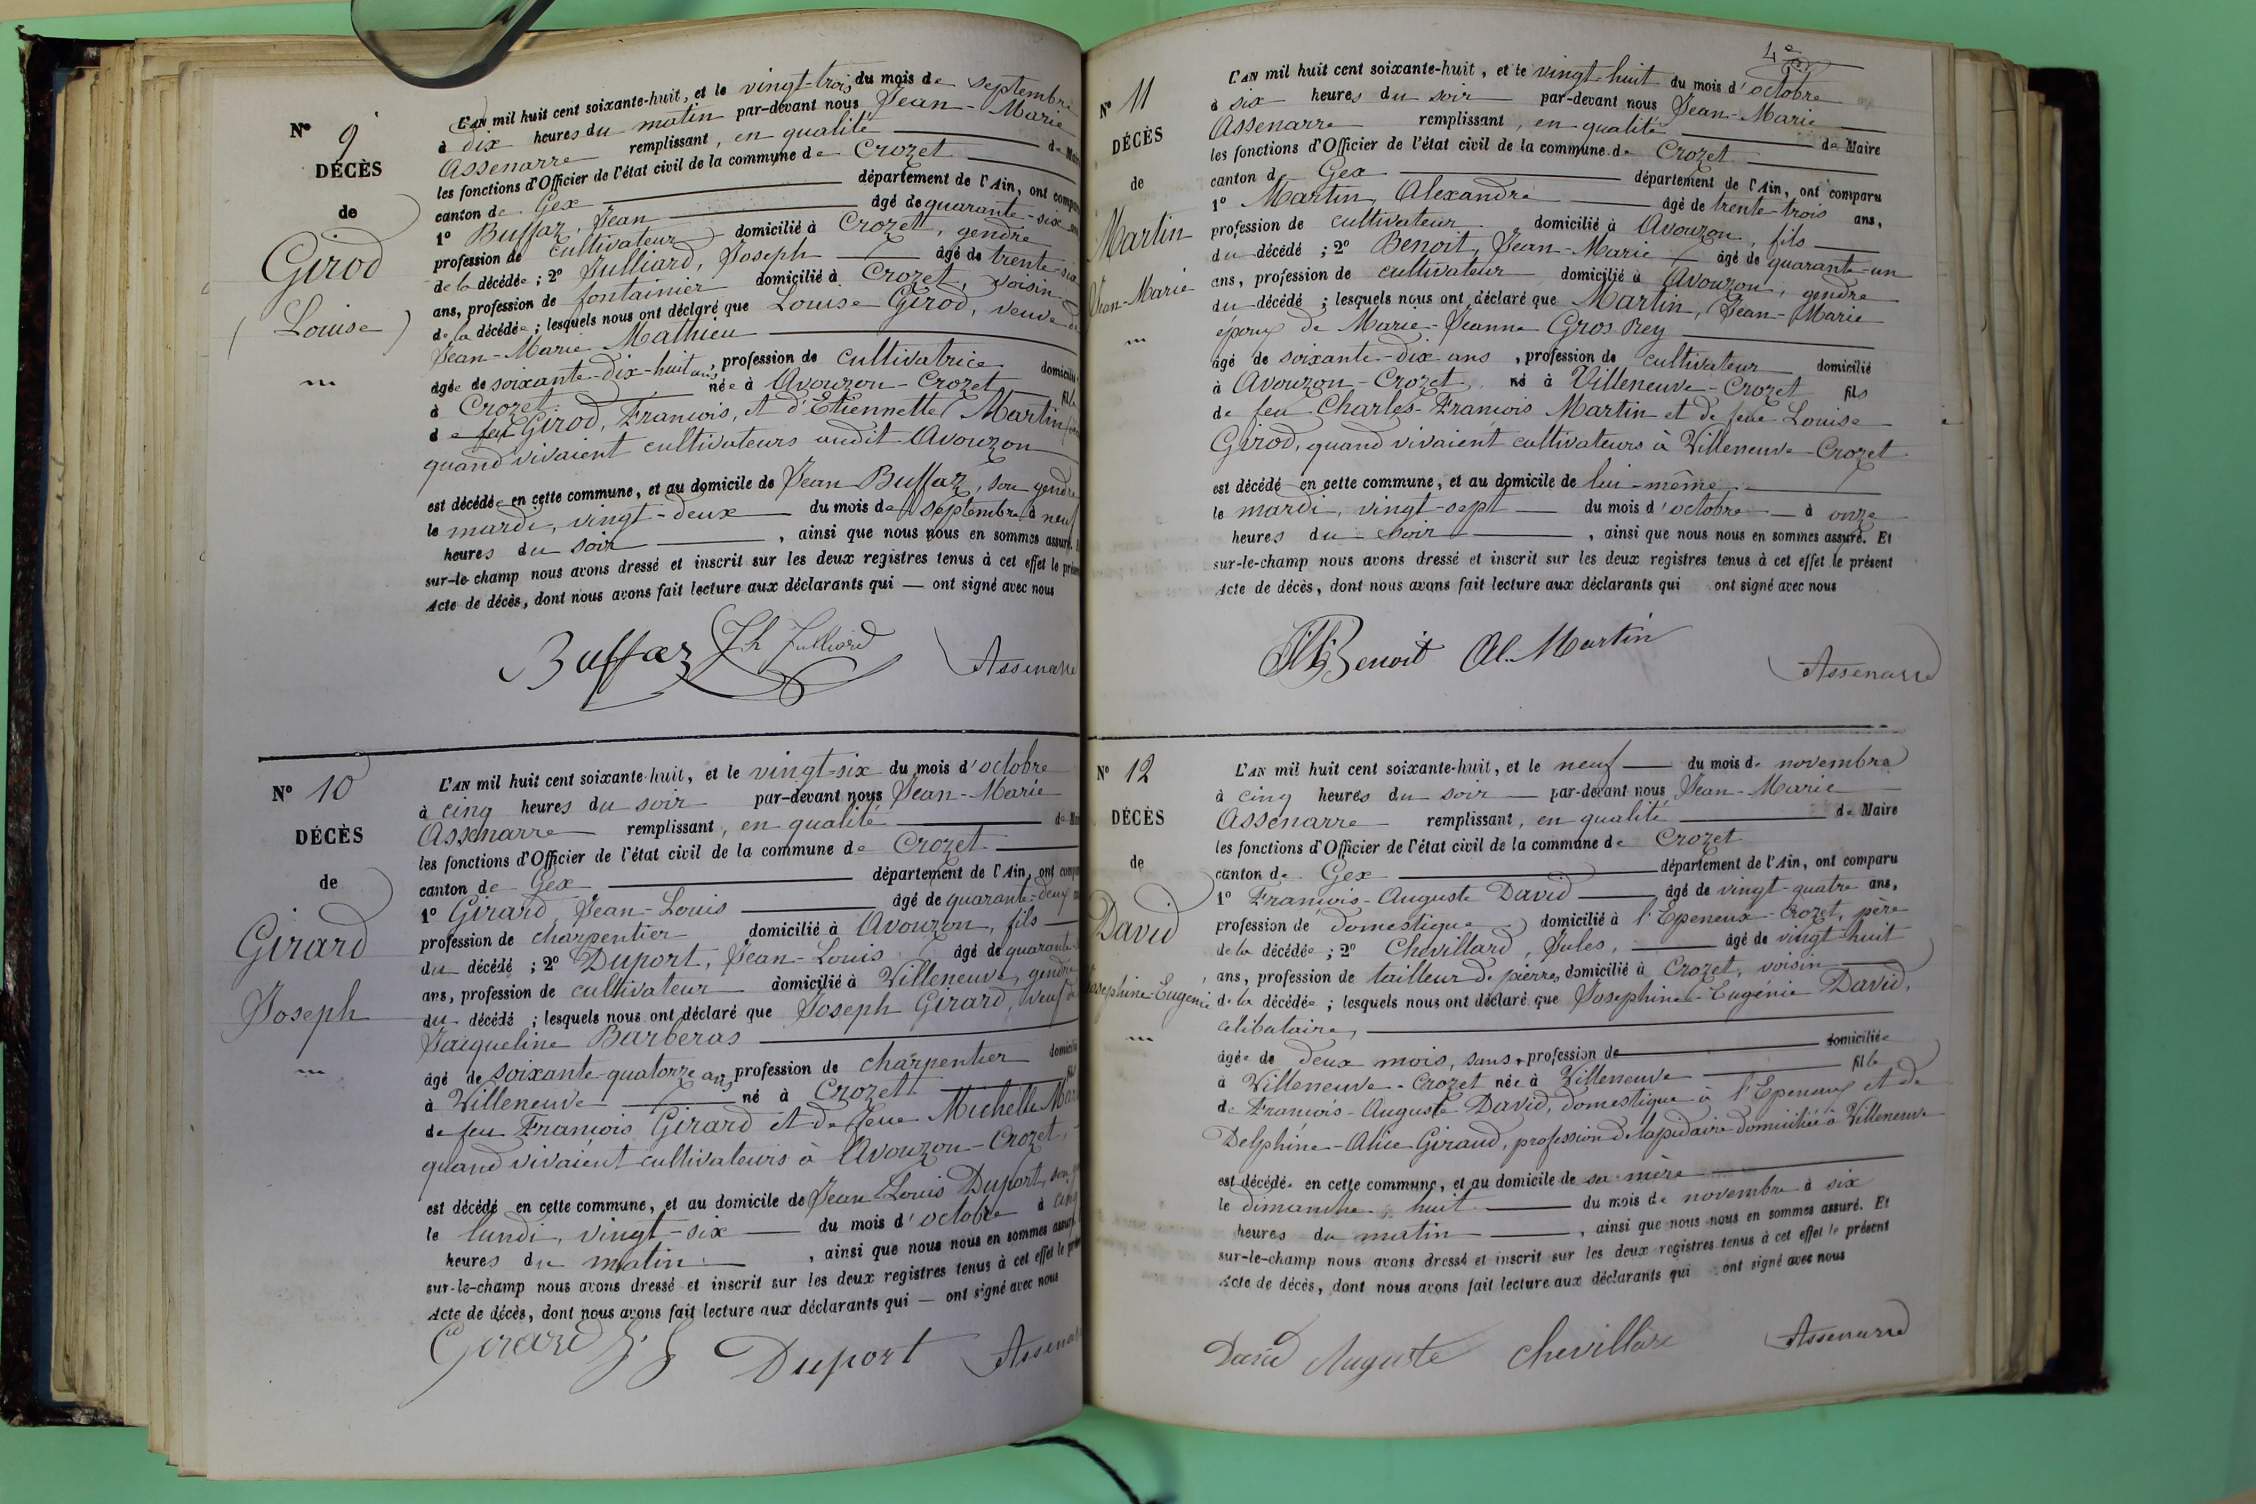 N° 9
DÉCÈS
de
Girod
Louise
L'AN mil huit cent soixante-huit, et le vingt-trois du mois de septembre
à dix heures du matin par-devant nous Jean-Marie
Assenarre remplissant, en qualité de Maire
les fonctions d'Officier de l'état civil de la commune de Crozet
canton de Gex département de l'Ain, ont comparu
1° Buffaz, Jean âgé de quarante-six
profession de cultivateur domicilié à Crozet, gendre
de la décédée ; 2° Julliard, Joseph âgé de trente-six
ans, profession de fontainier domicilié à Crozet, voisin
de la décédée ; lesquels nous ont déclaré que Louise Girod, veuve de
Jean-Marie Mathieu
âgée de soixante-dix-huit ans, profession de cultivatrice domiciliée
à Crozet née à Avouzon-Crozet fille
de feu Girod, François, et d'Etiennette Martin
quand vivaient cultivateurs audit Avouzon
est décédée en cette commune, et au domicile de Jean Buffaz, son gendre
le mardi, vingt-deux du mois de septembre à neuf
heures du soir, ainsi que nous nous en sommes assuré.
sur-le-champ nous avons dressé et inscrit sur les deux registres tenus à cet effet le présent
Acte de décès, dont nous avons fait lecture aux déclarants qui — ont signé avec nous
Buffaz Jh Julliard Assenarre
N° 10
DÉCÈS
de
Girard
Joseph
L'AN mil huit cent soixante-huit, et le vingt-six du mois d'octobre
à cinq heures du soir par-devant nous Jean-Marie
Assenarre remplissant, en qualité de Maire
les fonctions d'Officier de l'état civil de la commune de Crozet
canton de Gex département de l'Ain, ont comparu
1° Girard, Jean-Louis âgé de quarante-deux
profession de charpentier domicilié à Avouzon, fils
du décédé ; 2° Duport, Jean-Louis âgé de quarante
ans, profession de cultivateur domicilié à Villeneuve, gendre
du décédé ; lesquels nous ont déclaré que Joseph Girard, veuf de
Jacqueline Barberas
âgé de soixante-quatorze ans, profession de charpentier domicilié
à Villeneuve né à Crozet fils
de feu François Girard et de feue Michelle
quand vivaient cultivateurs à Avouzon-Crozet,
est décédé en cette commune, et au domicile de Jean Louis Duport, son
le lundi, vingt-six du mois d'octobre à cinq
heures du matin, ainsi que nous nous en sommes assuré.
sur-le-champ nous avons dressé et inscrit sur les deux registres tenus à cet effet le présent
Acte de décès, dont nous avons fait lecture aux déclarants qui — ont signé avec nous
Girard J L Duport Assenarre
4e
N° 11
DÉCÈS
de
Martin
Jean-Marie
L'AN mil huit cent soixante-huit, et le vingt-huit du mois d'octobre
à six heures du soir par-devant nous Jean-Marie
Assenarre remplissant, en qualité de Maire
les fonctions d'Officier de l'état civil de la commune de Crozet
canton de Gex département de l'Ain, ont comparu
1° Martin, Alexandre âgé de trente-trois ans,
profession de cultivateur domicilié à Avouzon, fils
du décédé ; 2° Benoit, Jean-Marie âgé de quarante-un
ans, profession de cultivateur domicilié à Avouzon, gendre
du décédé ; lesquels nous ont déclaré que Martin, Jean-Marie
époux de Marie-Jeanne Gros-Rey
âgé de soixante-dix ans, profession de cultivateur domicilié
à Avouzon-Crozet, né à Villeneuve-Crozet fils
de feu Charles-François Martin et de feue Louise
Girod, quand vivaient cultivateurs à Villeneuve-Crozet
est décédé en cette commune, et au domicile de lui-même
le mardi, vingt-sept du mois d'octobre à onze
heures du soir, ainsi que nous nous en sommes assuré. Et
sur-le-champ nous avons dressé et inscrit sur les deux registres tenus à cet effet le présent
Acte de décès, dont nous avons fait lecture aux déclarants qui ont signé avec nous
Benoit Al. Martin Assenarre
N° 12
DÉCÈS
de
David
Josephine-Eugénie
L'AN mil huit cent soixante-huit, et le neuf du mois de novembre
à cinq heures du soir par-devant nous Jean-Marie
Assenarre remplissant, en qualité de Maire
les fonctions d'Officier de l'état civil de la commune de Crozet
canton de Gex département de l'Ain, ont comparu
1° François-Auguste David âgé de vingt-quatre ans,
profession de domestique domicilié à l'Epeneux-Crozet, père
de la décédée ; 2° Chevillard, Jules, âgé de vingt-huit
ans, profession de tailleur de pierres domicilié à Crozet, voisin
de la décédée ; lesquels nous ont déclaré que Josephine-Eugénie David,
célibataire,
âgée de deux mois, sans profession de domiciliée
à Villeneuve-Crozet née à Villeneuve fille
de François-Auguste David, domestique à l'Epeneux et de
Delphine-Alice Giraud, profession de lapidaire domiciliée à Villeneuve
est décédée en cette commune, et au domicile de sa mère
le dimanche huit du mois de novembre à six
heures du matin, ainsi que nous nous en sommes assuré. Et
sur-le-champ nous avons dressé et inscrit sur les deux registres tenus à cet effet le présent
Acte de décès, dont nous avons fait lecture aux déclarants qui ont signé avec nous
David Auguste Chevillard Assenarre